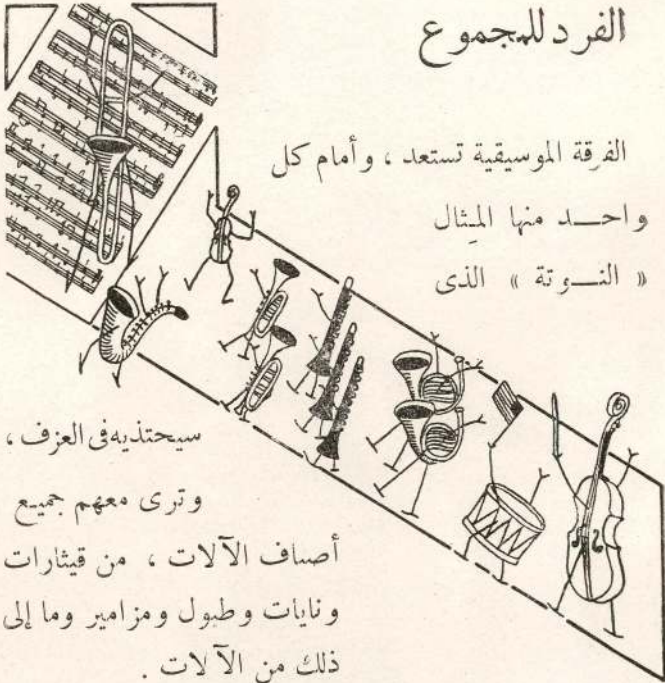 الفرد للمجموع
الفرقة الموسيقية تستعد ، وأمام كل
واحـــد منها المِثال
« النـــوتة » الذى
سيحتذيه فى العزف ،
وترى معهم جميع
أصناف الآلات ، من قيثارات
ونايات وطبول ومزامير وما إلى
ذلك من الآلات .